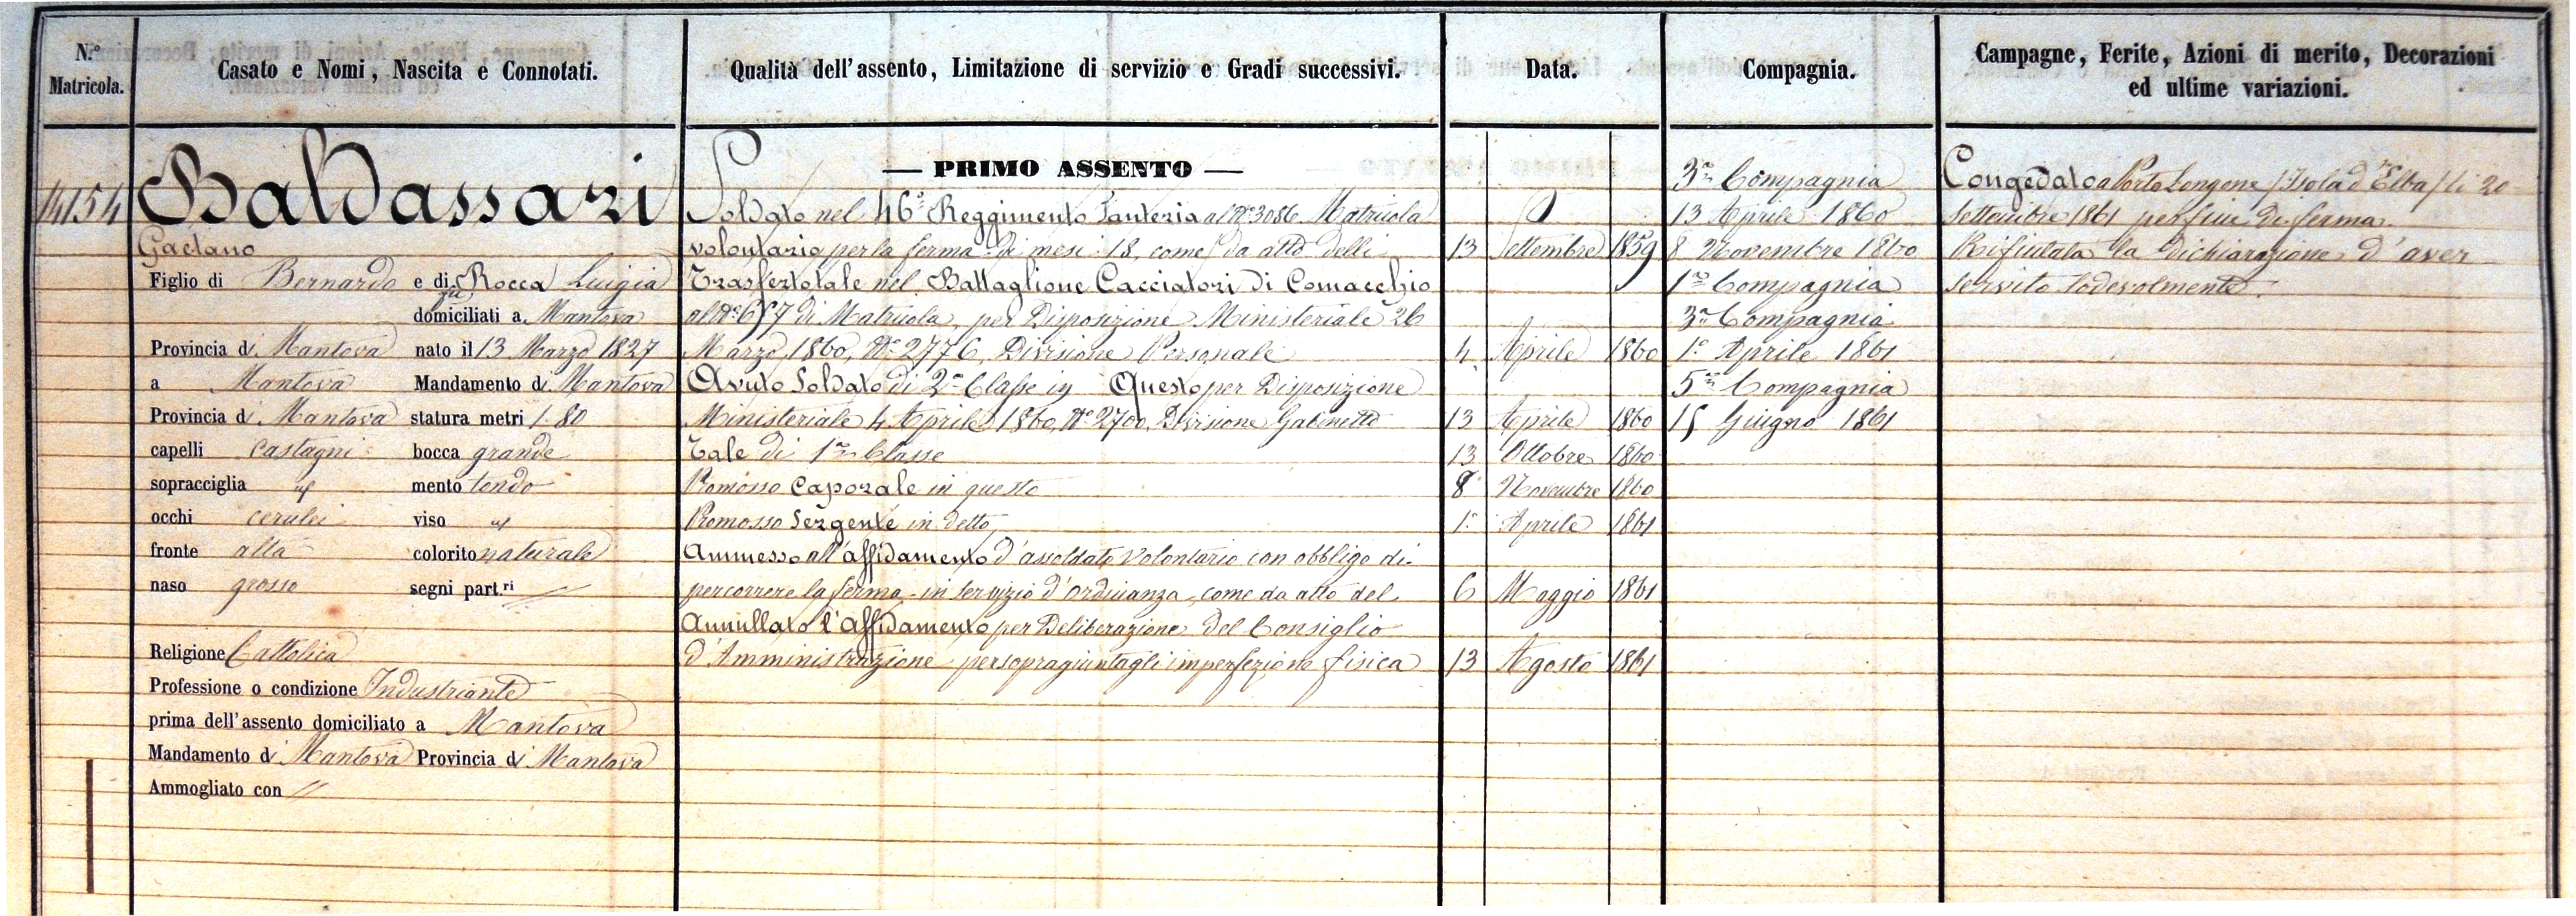 N.º Matricola.
Casato e Nomi, Nascita e Connotati.
Qualità dell'assento, Limitazione di servizio e Gradi successivi.
Data.
Compagnia.
Campagne, Ferite, Azioni di merito, Decorazioni
ed ultime variazioni.
14154
Baldassari
Gaetano
Figlio di Bernardo e di Rocca Luigia
domiciliati a Mantova
Provincia di Mantova nato il 13 Marzo 1827
a Mantova Mandamento di Mantova
Provincia di Mantova statura metri 1.80
capelli castagni bocca grande
sopracciglia id mento tondo
occhi cerulei viso id
fronte alta colorito naturale
naso grosso segni part.ri //
Religione Cattolica
Professione o condizione Industriante
prima dell'assento domiciliato a Mantova
Mandamento di Mantova Provincia di Mantova
Ammogliato con //
— PRIMO ASSENTO —
Soldato nel 46º Reggimento Fanteria al Nº 3086 Matricola
volontario per la ferma di mesi 18, come da atto delli 13 Settembre 1859
Trasferto tale nel Battaglione Cacciatori di Comacchio
al Nº 657 di Matricola, per Disposizione Ministeriale 26
Marzo 1860, Nº 2776, Divisione Personale 4 Aprile 1860
Avuto Soldato di 2ª Classe in Questo per Disposizione
Ministeriale 4 Aprile 1860, Nº 2700, Divisione Gabinetto 13 Aprile 1860
Tale di 1ª Classe 13 Ottobre 1860
Promosso Caporale in questo 8 Novembre 1860
Promosso Sergente in detto 1º Aprile 1861
Ammesso all'affidamento d'assoldato volontario con obbligo di
percorrere la ferma in servizio d'ordinanza, come da atto del 6 Maggio 1861
Annullato l'Affidamento per Deliberazione del Consiglio
d'Amministrazione per sopragiuntagli imperfezione fisica 13 Agosto 1861
3ª Compagnia
13 Aprile 1860
8 Novembre 1860
1ª Compagnia
3ª Compagnia
1º Aprile 1861
5ª Compagnia
15 Giugno 1861
Congedato a Porto Longone (Isola d'Elba) li 20
Settembre 1861 per fine di ferma.
Rifiutata la Dichiarazione d'aver
servito lodevolmente.